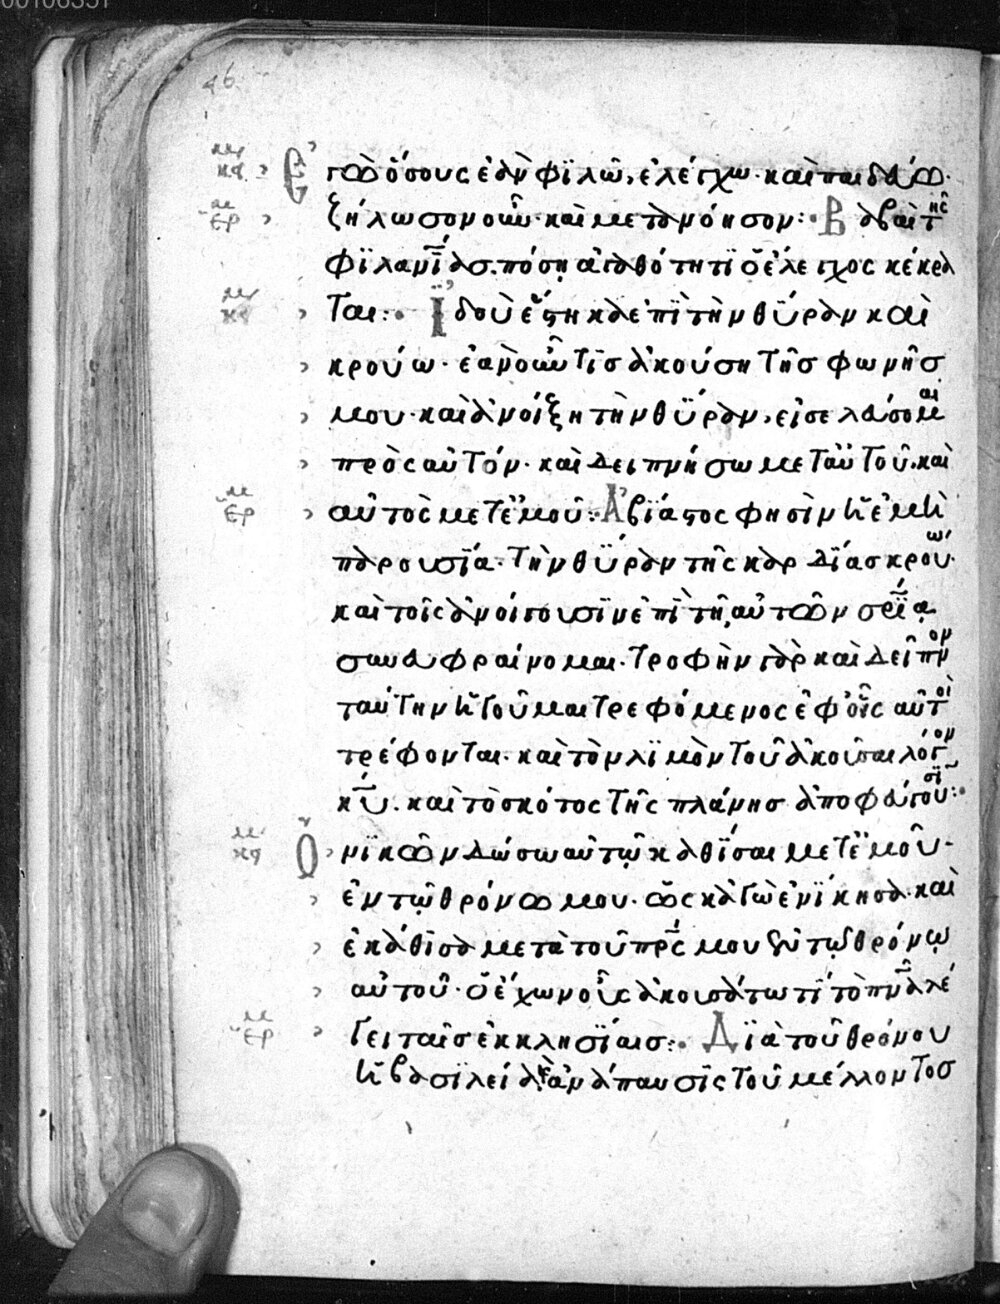 46
Ἐγὼ ὅσους ἐὰν φϊλῶ, ἐλέγχω· καὶ παιδεύω·
ζήλωσον οὖν· καὶ μετανόησον:· Βαβαὶ τῆς
φϊλανΐας· πόση ἀγαθότητϊ ὁ ἔλεγχος κέκρα
ται:· Ϊδοὺ ἕστηκα ἐπϊ τὴν θΰραν καὶ
κρούω· ἐὰν οὖν τὶς ἀκούση τῆς φωνῆς
μου· καὶ ἀνοίξη τὴν θΰραν, εἰσελεύσομαι
πρὸς αὐτόν· καὶ δειπνήσω μετ αὐτοῦ· καὶ
αὐτὸς μετ ἐμοῦ:· Ἀβίαστος φησὶν ἡ ἐμὴ
παρουσΐα· τὴν θΰραν τῆς καρδΐας κρούω·
καὶ τοῖς ἀνοίγουσϊν ἐπὶ τῆ αὐτῶν σρΐα
συνευφραίνομαι· τροφὴν γὰρ καὶ δεῖπνον
ταύτην ἡγοῦμαι τρεφόμενος ἐφ οἷς αὐτοὶ
τρέφονται· καὶ τὸν λϊμὸν τοῦ ἀκοῦσαι λόγον
κυ· καὶ τὸ σκότος τῆς πλάνης ἀποφεύγουσϊ:·
Ὁ νϊκῶν δώσω αὐτῶ καθΐσαι μετ ἐμοῦ·
ἐν τῶ θρόνω μου· ὡς κἀγὼ ἐνϊκησα· καὶ
ἐκάθϊσα μετὰ τοῦ πρς μου ἐν τῶ θρόνω
αὐτοῦ· ὁ ἔχων οὖς ἀκουσάτω τϊ τὸ πνα λέ
γει ταῖς ἐκκλησΐαις:· Δϊὰ τοῦ θρόνου
ἡ βασϊλεία καὶ ἀνάπαυσϊς τοῦ μέλλοντος